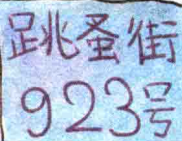 跳蚤街
923号